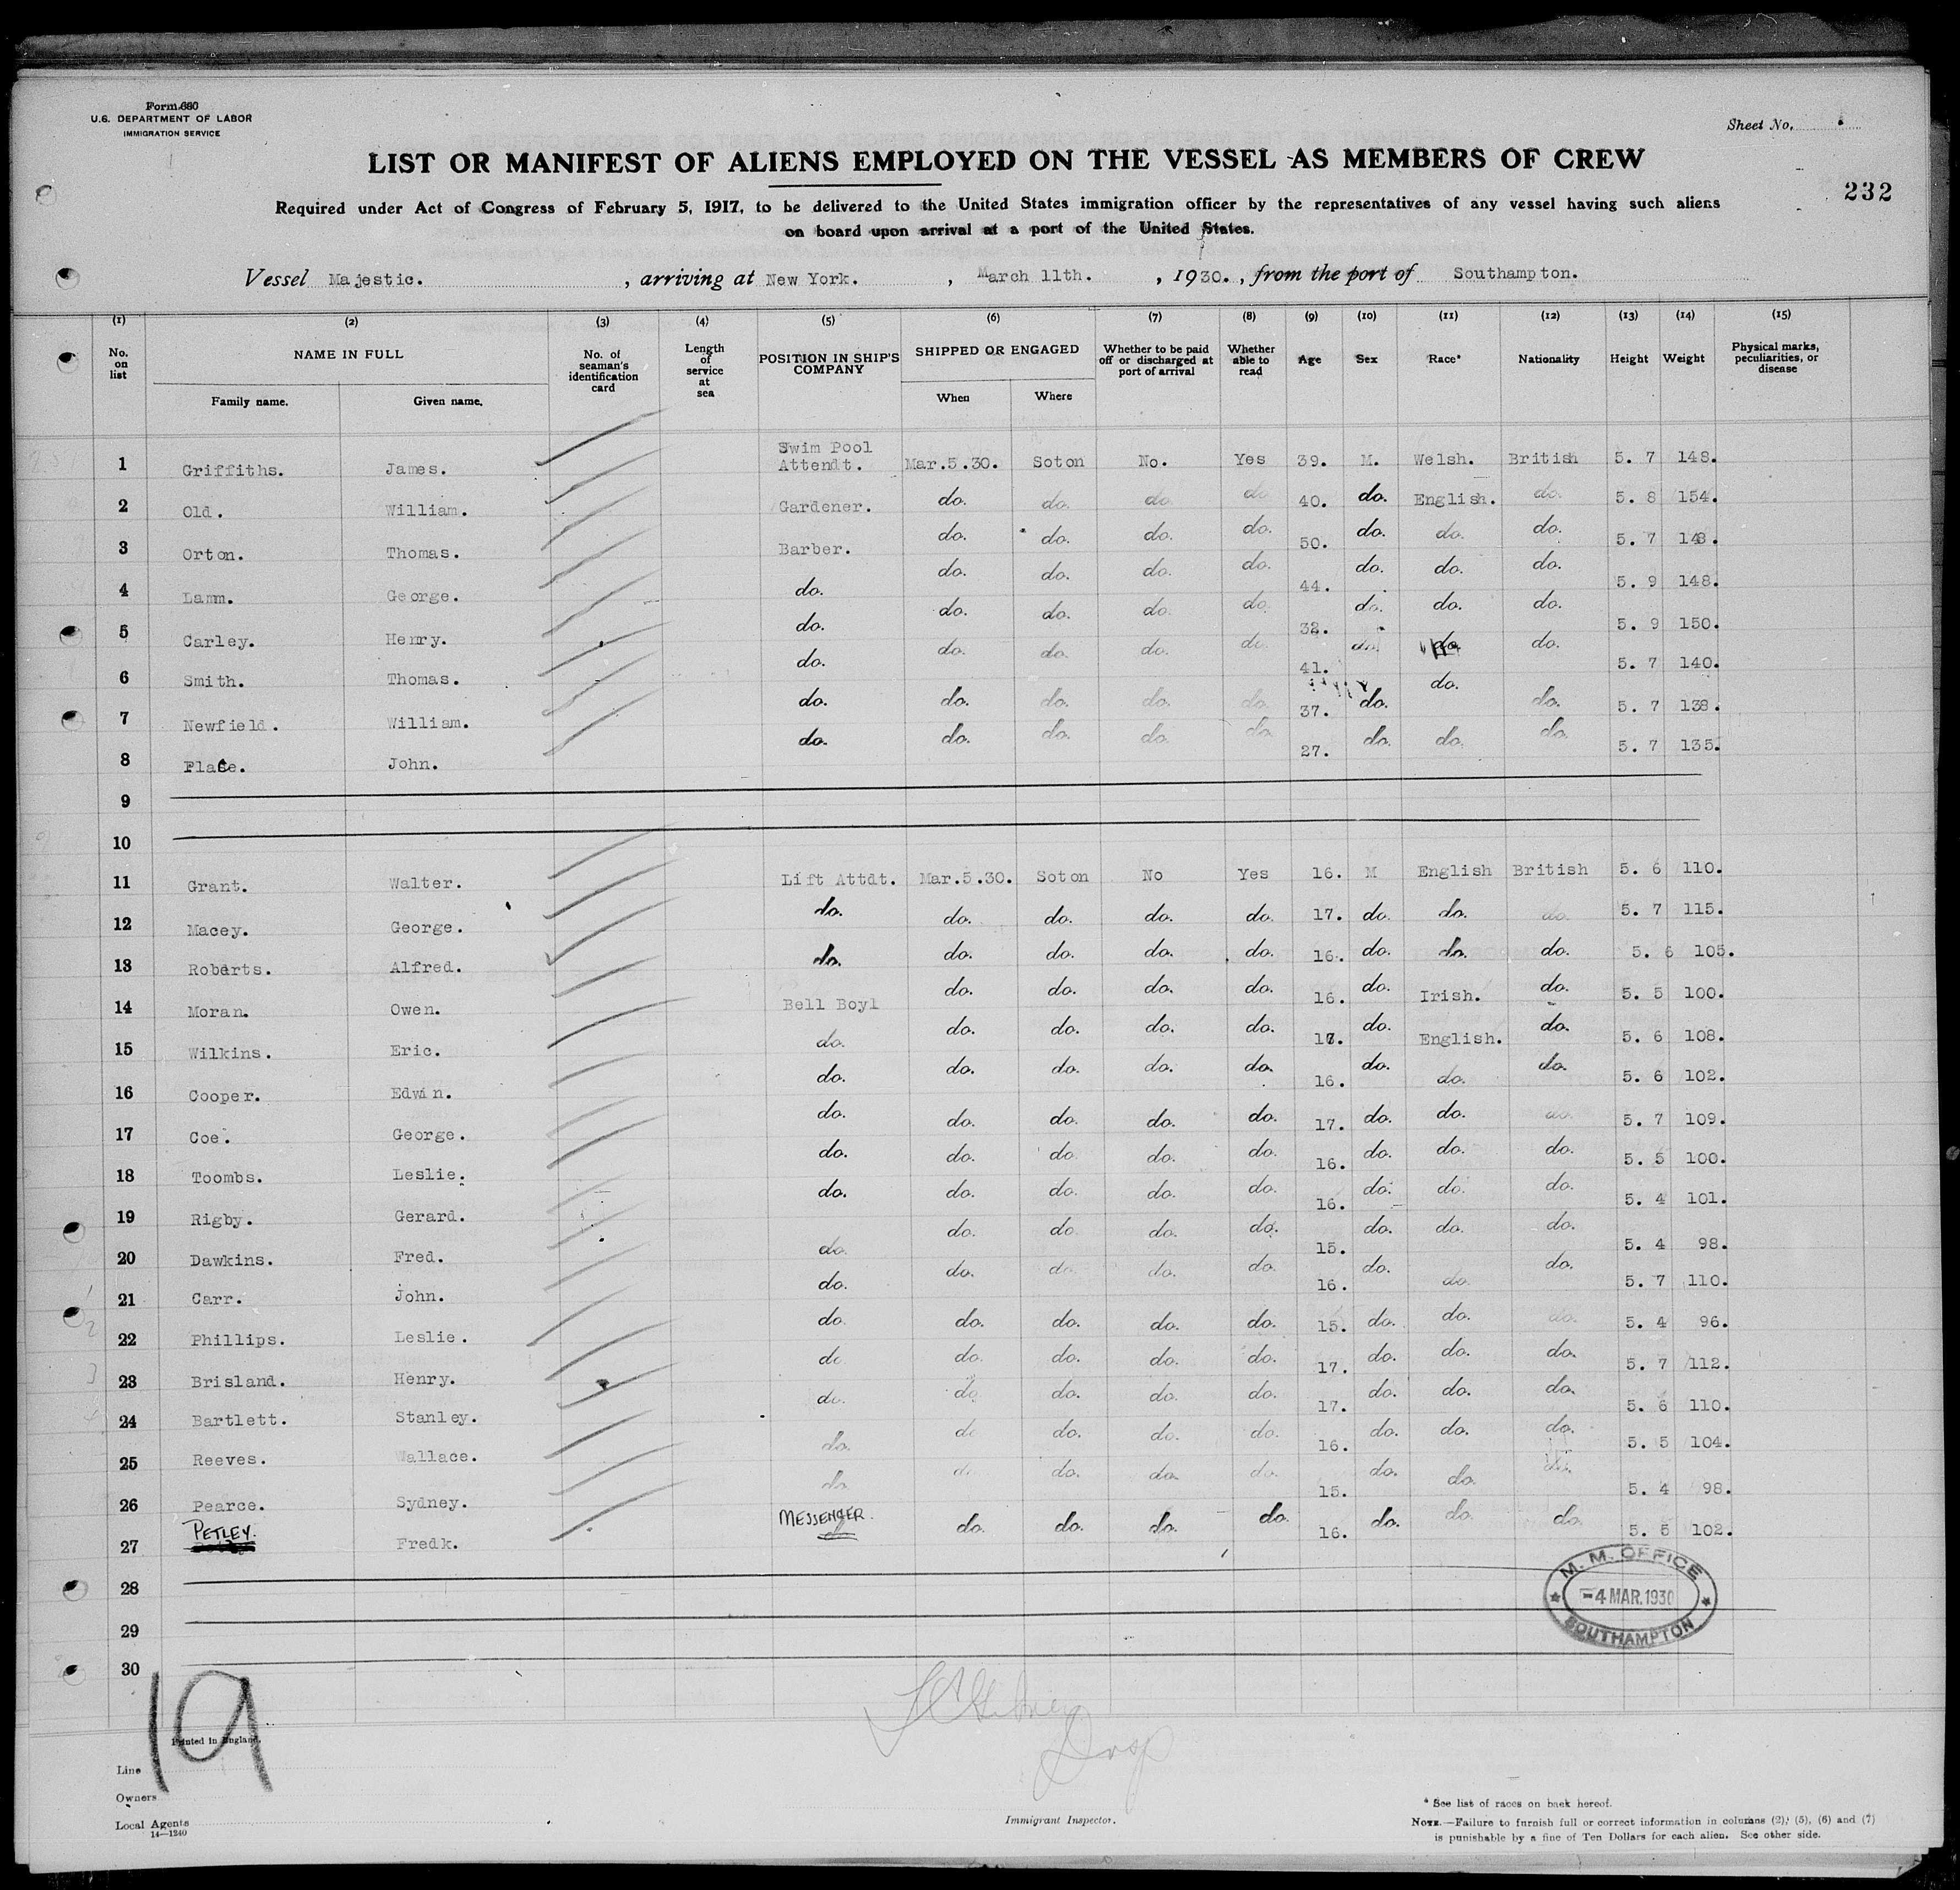 Form 680
U.S. DEPARTMENT OF LABOR
IMMIGRATION SERVICE
Sheet No.
LIST OR MANIFEST OF ALIENS EMPLOYED ON THE VESSEL AS MEMBERS OF CREW
232
Required under Act of Congress of February 5, 1917, to be delivered to the United States immigration officer by the representatives of any vessel having such aliens
on board upon arrival at a port of the United States.
Vessel Majestic. , arriving at New York. , March 11th. , 1930. , from the port of Southampton.
(1) (2) (3) (4) (5) (6) (7) (8) (9) (10) (11) (12) (13) (14) (15)
No. on list NAME IN FULL Family name. Given name. No. of seaman's identification card Length of service at sea POSITION IN SHIP'S COMPANY SHIPPED OR ENGAGED When Where Whether to be paid off or discharged at port of arrival Whether able to read Age Sex Race* Nationality Height Weight Physical marks, peculiarities, or disease
1 Griffiths. James. Swim Pool Attendt. Mar.5.30. Soton No. Yes 39. M. Welsh. British 5. 7 148.
2 Old. William. Gardener. do. do. do. do. 40. do. English. do. 5. 8 154.
3 Orton. Thomas. Barber. do. do. do. do. 50. do. do. do. 5. 7 148.
4 Lamm. George. do. do. do. do. do. 44. do. do. do. 5. 9 148.
5 Carley. Henry. do. do. do. do. do. 32. do. do. do. 5. 9 150.
6 Smith. Thomas. do. do. do. do. do. 41. do. do. do. 5. 7 140.
7 Newfield. William. do. do. do. do. do. 37. do. do. do. 5. 7 138.
8 Place. John. do. do. do. do. do. 27. do. do. do. 5. 7 135.
9
10
11 Grant. Walter. Lift Attdt. Mar.5.30. Soton No Yes 16. M English British 5. 6 110.
12 Macey. George. do. do. do. do. do. 17. do. do. do. 5. 7 115.
13 Roberts. Alfred. do. do. do. do. do. 16. do. do. do. 5. 6 105.
14 Moran. Owen. Bell Boyl do. do. do. do. 16. do. Irish. do. 5. 5 100.
15 Wilkins. Eric. do. do. do. do. do. do. English. do. 5. 6 108.
16 Cooper. Edwin. do. do. do. do. do. 16. do. do. do. 5. 6 102.
17 Coe. George. do. do. do. do. do. 17. do. do. do. 5. 7 109.
18 Toombs. Leslie. do. do. do. do. do. 16. do. do. do. 5. 5 100.
19 Rigby. Gerard. do. do. do. do. do. 16. do. do. do. 5. 4 101.
20 Dawkins. Fred. do. do. do. do. do. 15. do. do. do. 5. 4 98.
21 Carr. John. do. do. do. do. do. 16. do. do. do. 5. 7 110.
22 Phillips. Leslie. do. do. do. do. do. 15. do. do. do. 5. 4 96.
23 Brisland. Henry. do. do. do. do. do. 17. do. do. do. 5. 7 112.
24 Bartlett. Stanley. do. do. do. do. do. 17. do. do. do. 5. 6 110.
25 Reeves. Wallace. do. do. do. do. do. 16. do. do. do. 5. 5 104.
26 Pearce. Sydney. do. do. do. do. do. 15. do. do. do. 5. 4 98.
27 PETLEY. Fredk. MESSENGER. do. do. do. do. 16. do. do. do. 5. 5 102.
28
29
30
M. M. OFFICE
-4 MAR. 1930
SOUTHAMPTON
19
Printed in England.
Line
Owners
Local Agents
14—1240
Immigrant Inspector.
* See list of races on back hereof.
NOTE.—Failure to furnish full or correct information in columns (2), (5), (6) and (7)
is punishable by a fine of Ten Dollars for each alien. See other side.